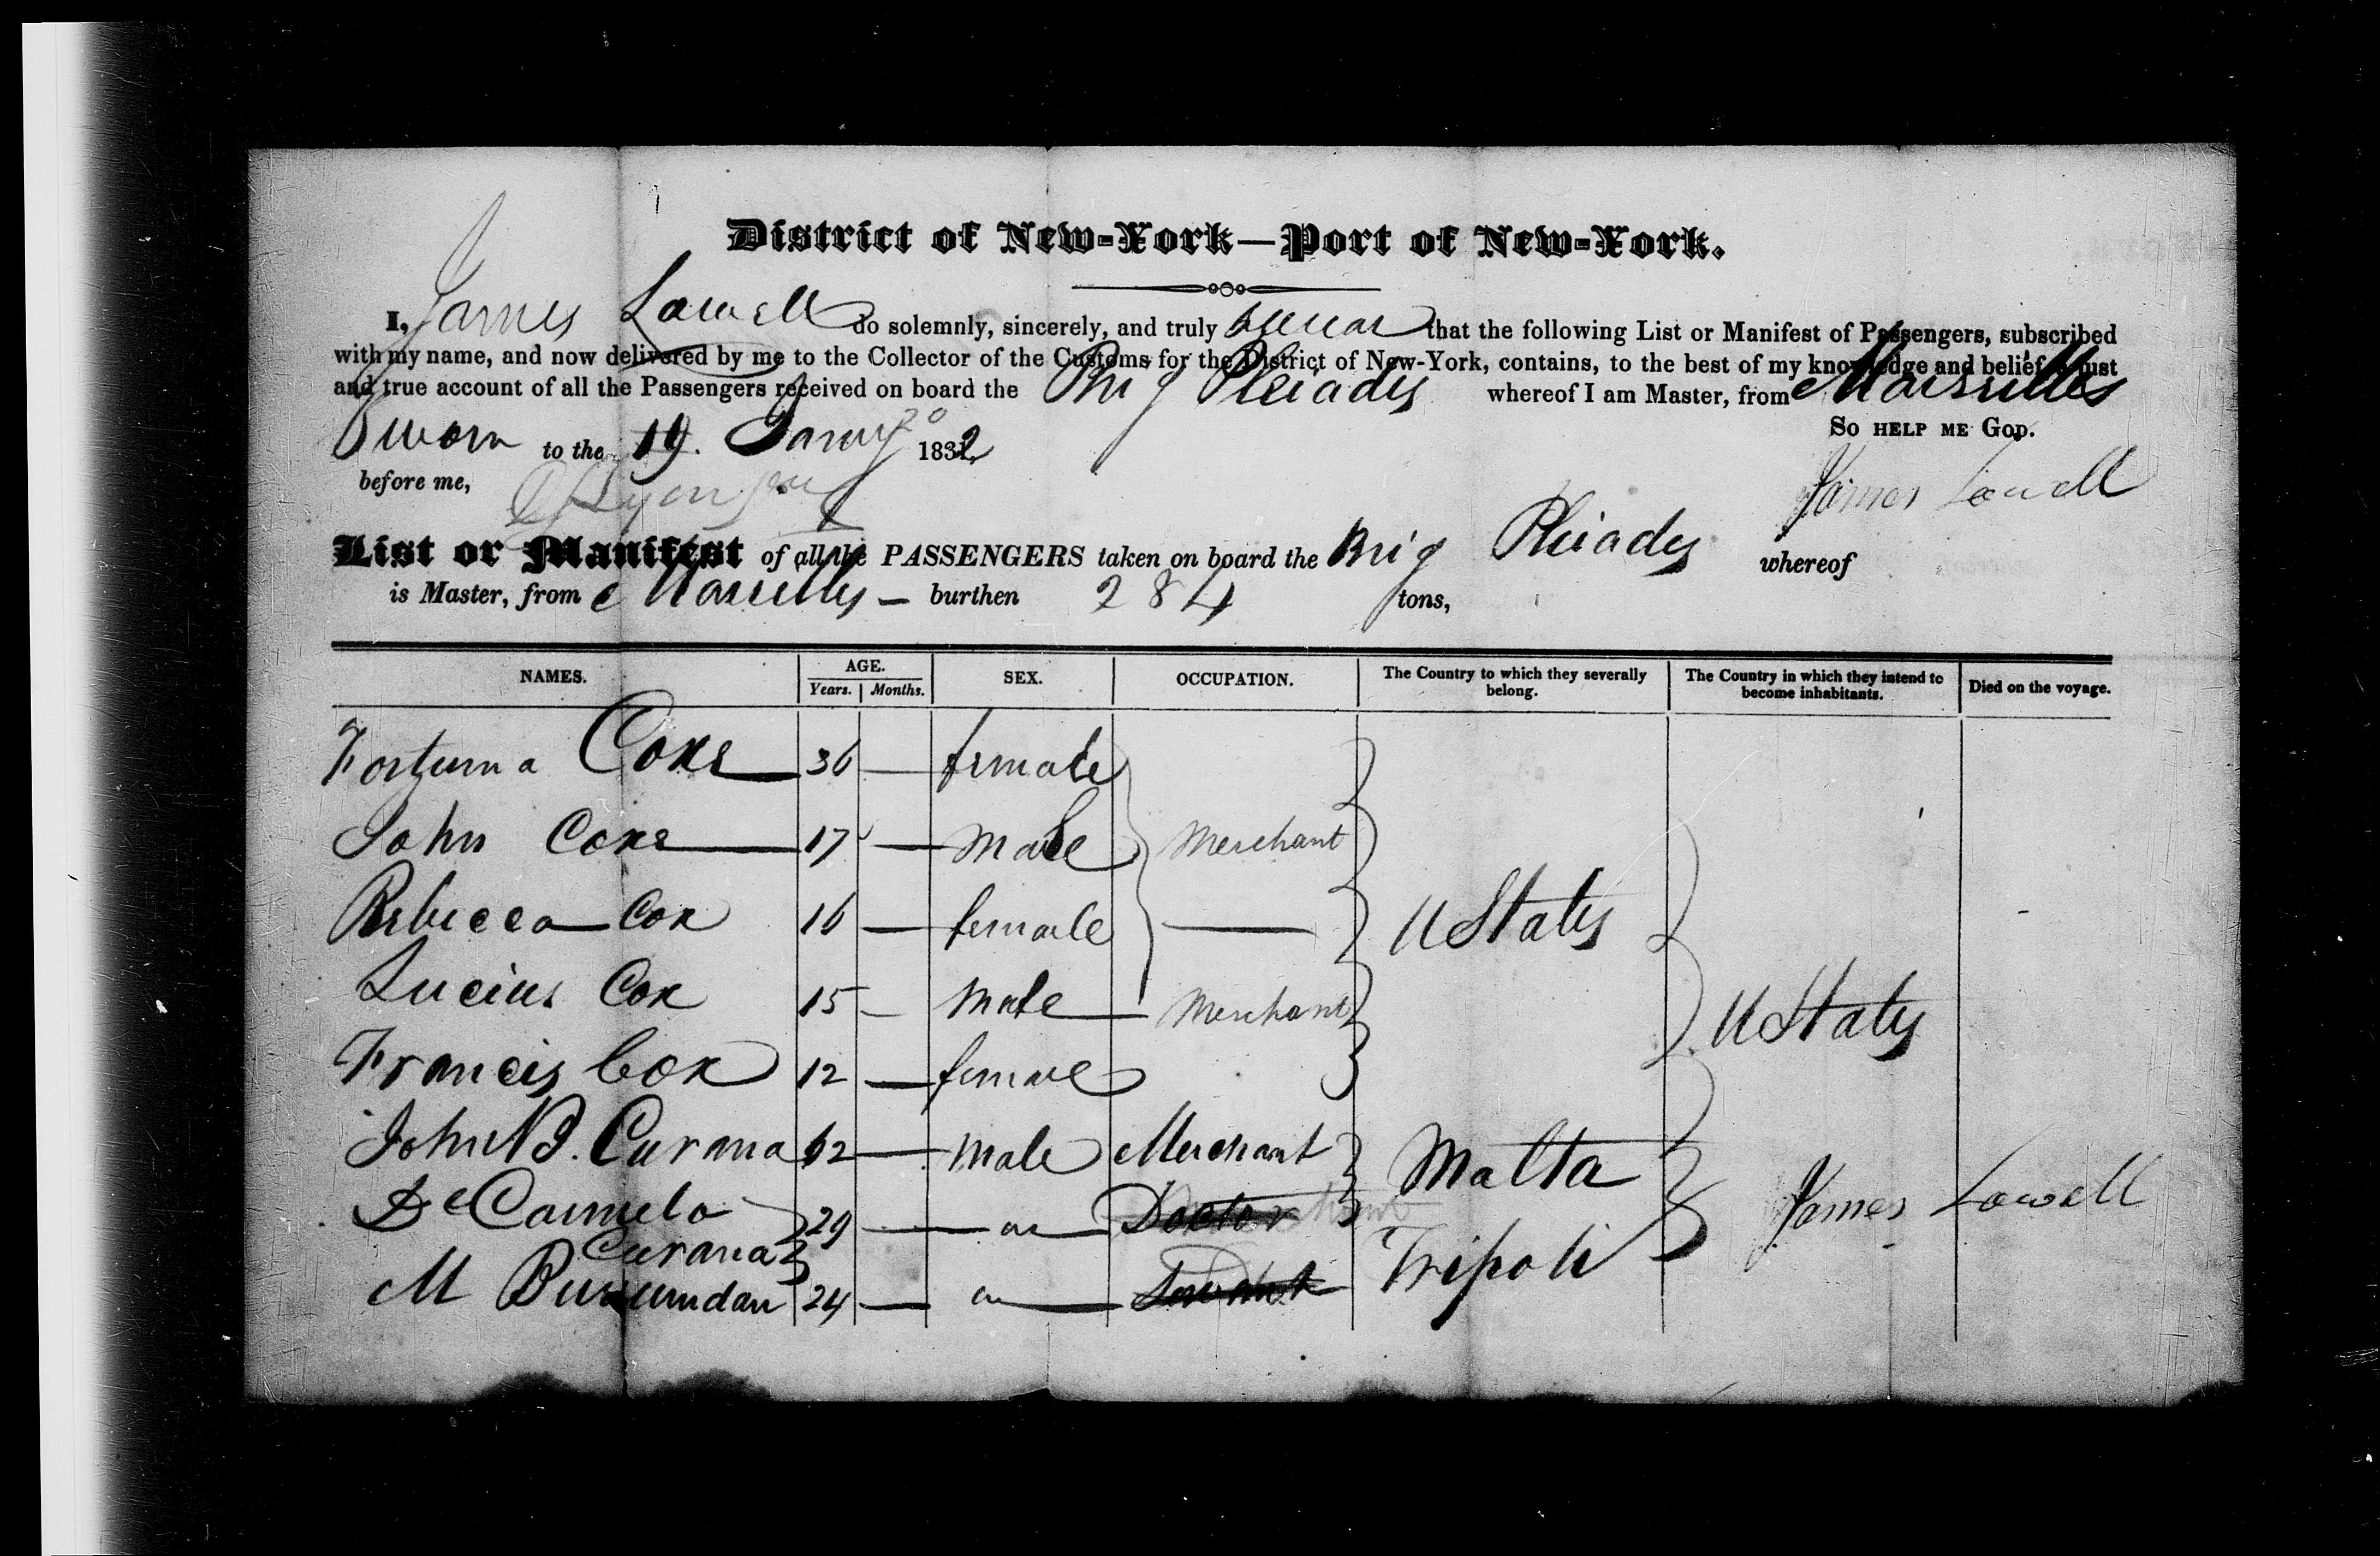 District of New-York—Port of New-York.
I, James Lowell do solemnly, sincerely, and truly swear that the following List or Manifest of Passengers, subscribed
with my name, and now delivered by me to the Collector of the Customs for the District of New-York, contains, to the best of my knowledge and belief a just
and true account of all the Passengers received on board the Brig Pleiades whereof I am Master, from Marseilles
Sworn to the 19. Jany 20 1832 So HELP ME GOD.
before me, James Lowell
List or Manifest of all the PASSENGERS taken on board the Brig Pleiades whereof
is Master, from Marseilles — burthen 284 tons,
NAMES. AGE. SEX. OCCUPATION. The Country to which they severally belong. The Country in which they intend to become inhabitants. Died on the voyage.
Years. Months.
Fortuna Coxe 36 — female
John Coxe 17 — Male Merchant
Rebecca Cox 16 — female — U States
Lucius Cox 15 — Male Merchant
Francis Cox 12 — female U States
John B. Curana 62 — Male Merchant Malta
De Carmelo Curana 29 — Doctor James Lowell
M 24 — Servant Tripoli